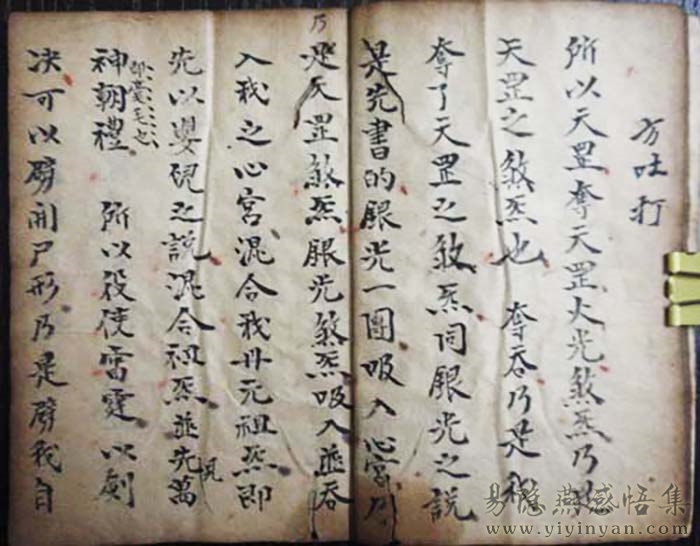 方吐打
所以天罡奪天罡火光煞炁乃
天罡之煞炁也 奪吞乃是
奪了天罡之煞炁同眼光之說
是先書的眼光一團吸入心宮乃
乃
是天罡煞炁眼光煞炁吸入並吞
入我之心宮混合我丹元祖炁即
先以嬰兒之說混合祖炁並先萬
神朝禮 所以役使雷霆以劍
决可以劈開尸形乃是劈我自
易隐燕感悟集
www.yiyinyan.com